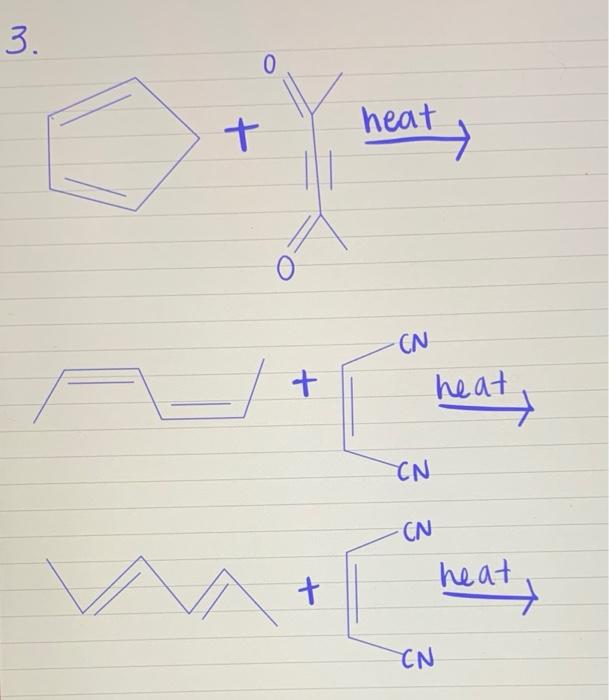 3.
O
+ heat
O
CN
+ heat
CN
CN
+ heat
CN